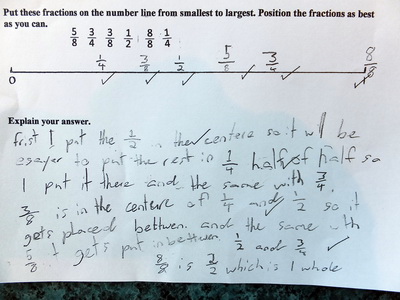 Put these fractions on the number line from smallest to largest. Position the fractions as best
as you can.
5/8 3/4 3/8 1/2 8/8 1/4
1/4 3/8 1/2 5/8 3/4 8/8
0
Explain your answer.
frist I put the 1/2 in the centere so it will be
esayer to put the rest in 1/4 half of half so
I put it there and the same with 3/4.
3/8 is in the centere of 1/4 and 1/2 so it
gets placed bettwen and the same with
5/8 it gets put inbettwen 1/2 and 3/4
8/8 is 2/2 which is 1 whole